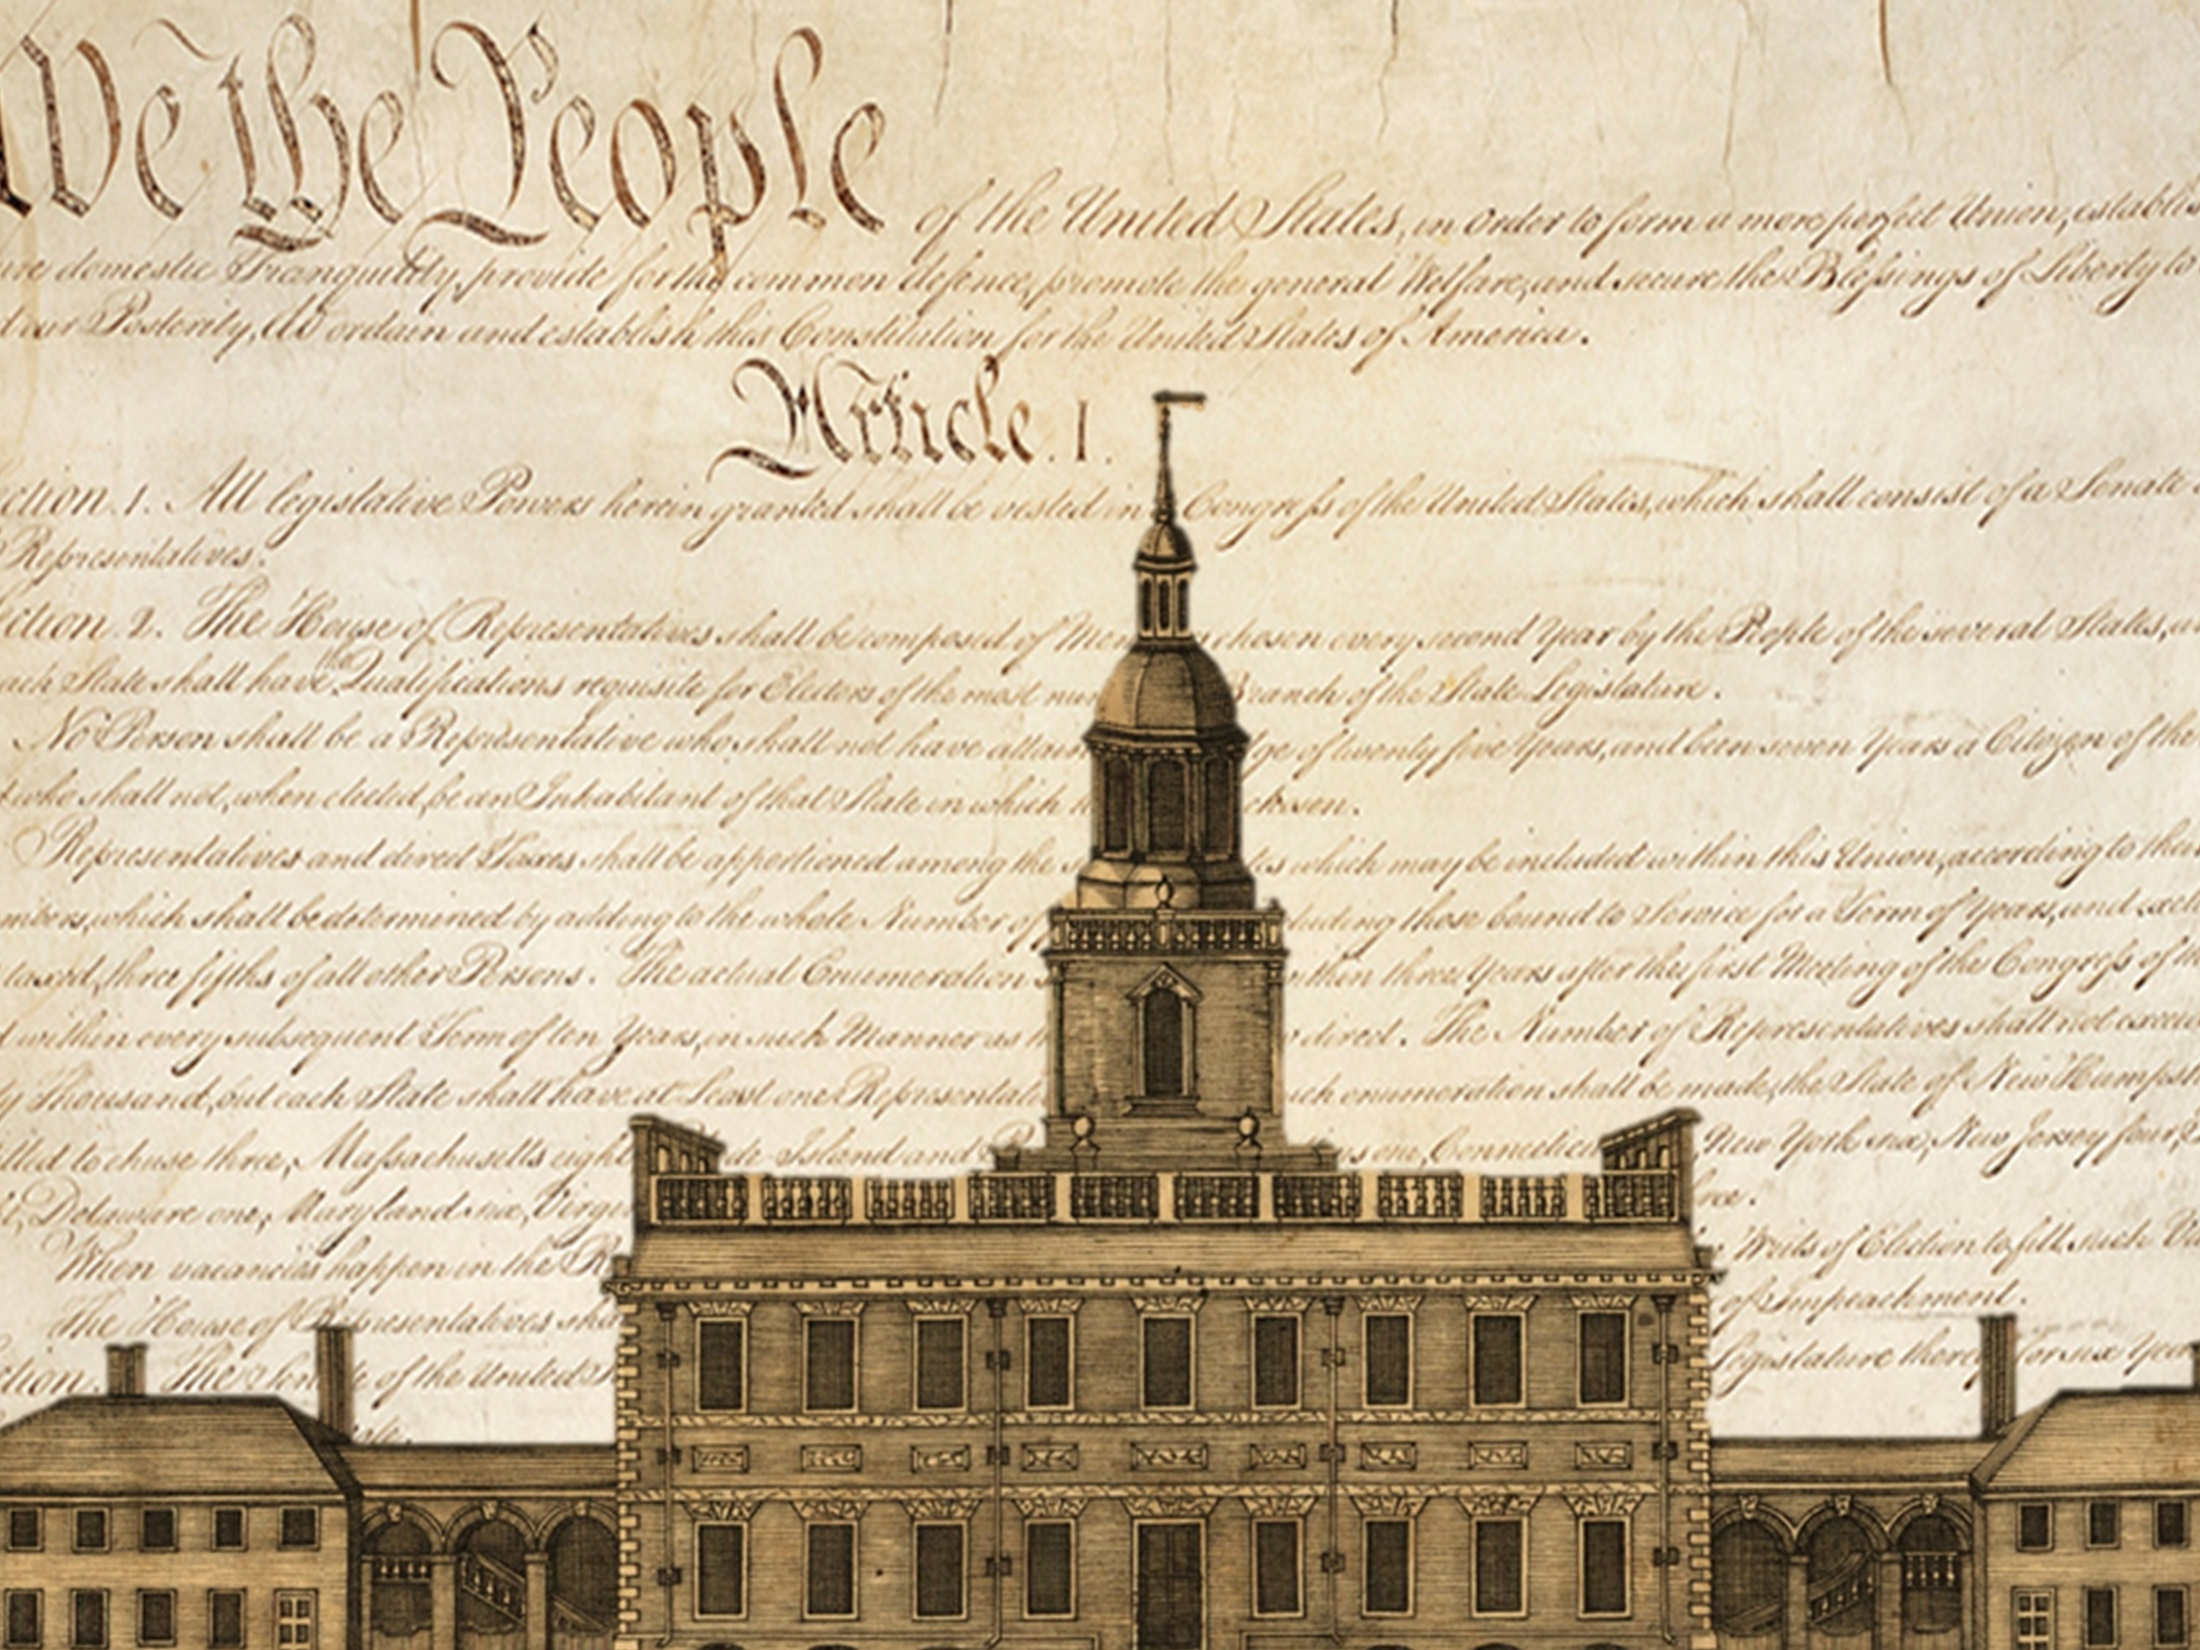 We the People of the United States, in Order to form a more perfect Union, establis
ure domestic Tranquility, provide for the common defence, promote the general Welfare, and secure the Blessings of Liberty to
d our Posterity, do ordain and establish this Constitution for the United States of America.
Article. I.
ection. 1. All legislative Powers herein granted shall be vested in Congress of the United States, which shall consist of a Senate
Representatives.
ection. 2. The House of Representatives shall be composed of Mem chosen every second Year by the People of the several States, a
ach State shall have the Qualifications requisite for Electors of the most nu Branch of the State Legislature.
No Person shall be a Representative who shall not have attain ge of twenty five Years, and been seven Years a Citizen of the
who shall not, when elected, be an Inhabitant of that State in which chosen.
Representatives and direct Taxes shall be apportioned among the s which may be included within this Union, according to thei
mbers, which shall be determined by adding to the whole Number of luding those bound to Service for a Term of Years, and excl
taxed, three fifths of all other Persons. The actual Enumeration within three Years after the first Meeting of the Congress of th
d within every subsequent Term of ten Years, in such Manner as th direct. The Number of Representatives shall not excee
ty Thousand, but each State shall have at Least one Representati uch enumeration shall be made, the State of New Hampsh
tled to chuse three, Massachusetts eight de Island and P s one, Connecticu New York six, New Jersey four,
Delaware one, Maryland six, Virgi ree.
When vacancies happen in the R Writs of Election to fill such Va
The House of Representatives sha of Impeachment.
ction. The Senate of the United S Legislature thereof for six Year